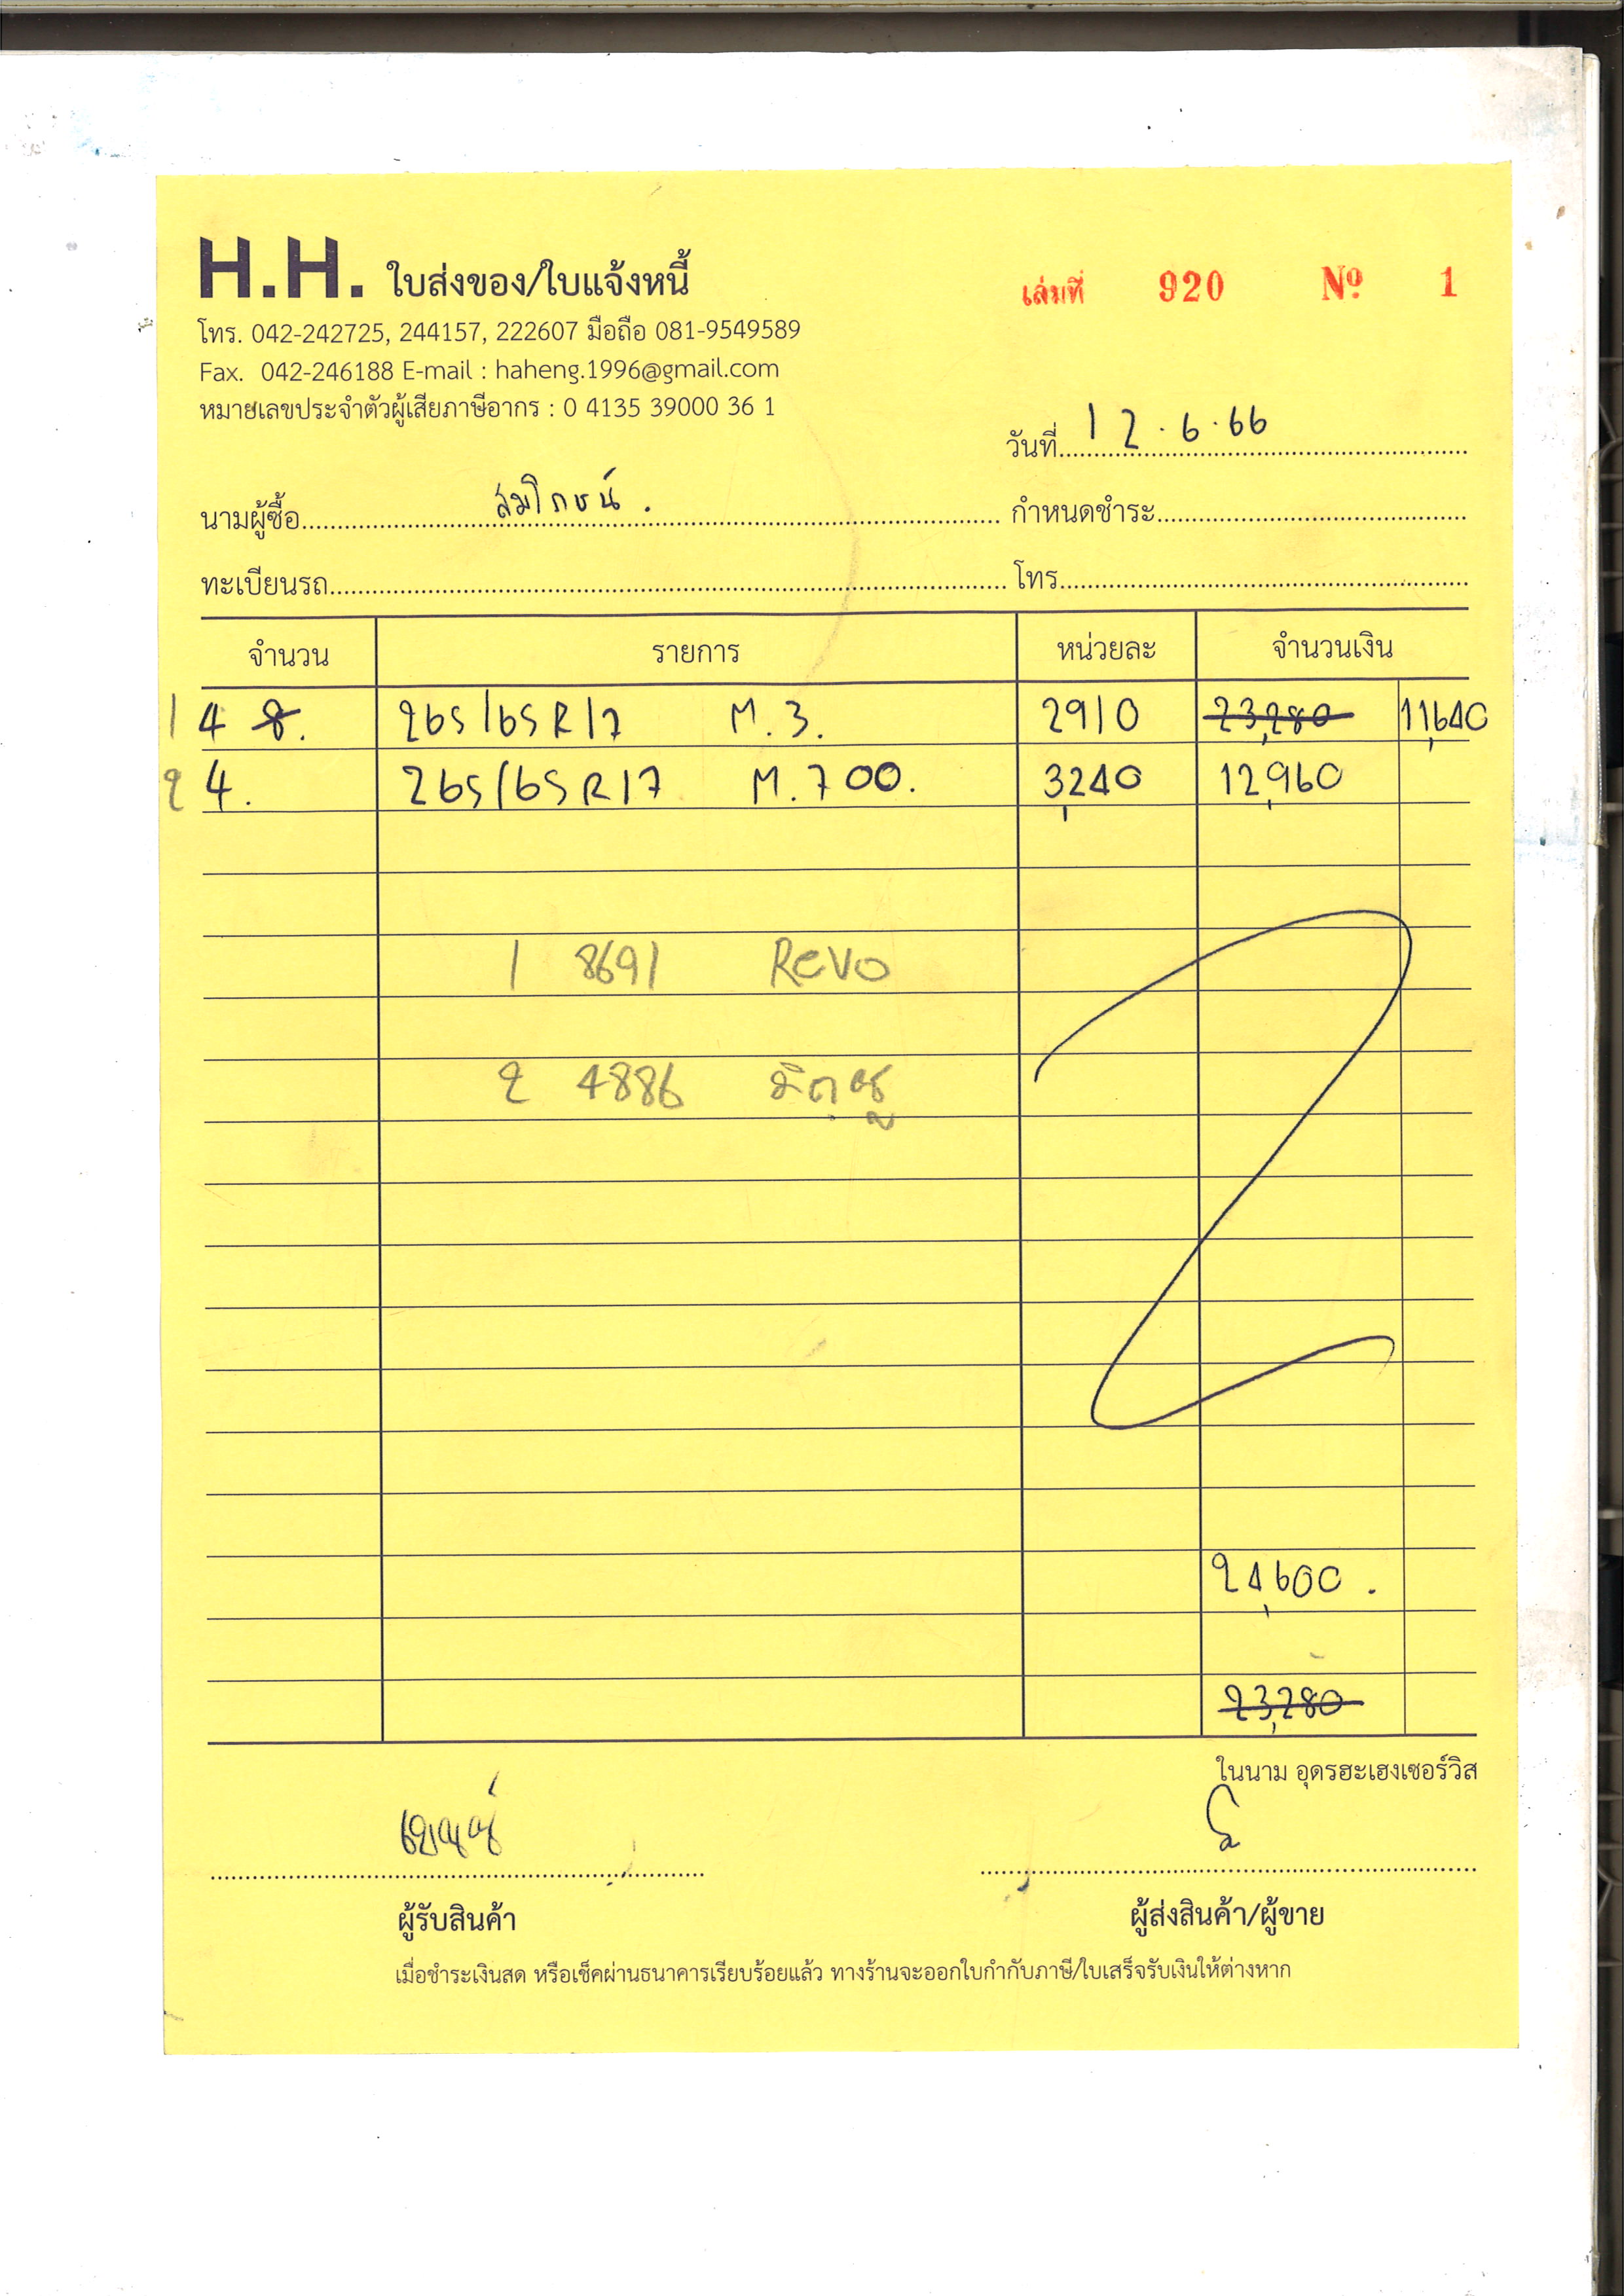 H.H. ใบส่งของ/ใบแจ้งหนี้ เล่มที่ 920 Nº 1
โทร. 042-242725, 244157, 222607 มือถือ 081-9549589
Fax. 042-246188 E-mail : haheng.1996@gmail.com
หมายเลขประจำตัวผู้เสียภาษีอากร : 0 4135 39000 36 1
วันที่ 12.6.66
นามผู้ซื้อ สมโภชน์. กำหนดชำระ
ทะเบียนรถ โทร.
จำนวน รายการ หน่วยละ จำนวนเงิน
1 4 8. 265/65R17 M.3. 2910 23,280 11,640
2 4. 265/65R17 M.700. 3,240 12,960
1 8691 Revo
2 4886 มิตซู
24,600.
23,280
ในนาม อุดรฮะเฮงเซอร์วิส
ผู้รับสินค้า ผู้ส่งสินค้า/ผู้ขาย
เมื่อชำระเงินสด หรือเช็คผ่านธนาคารเรียบร้อยแล้ว ทางร้านจะออกใบกำกับภาษี/ใบเสร็จรับเงินให้ต่างหาก